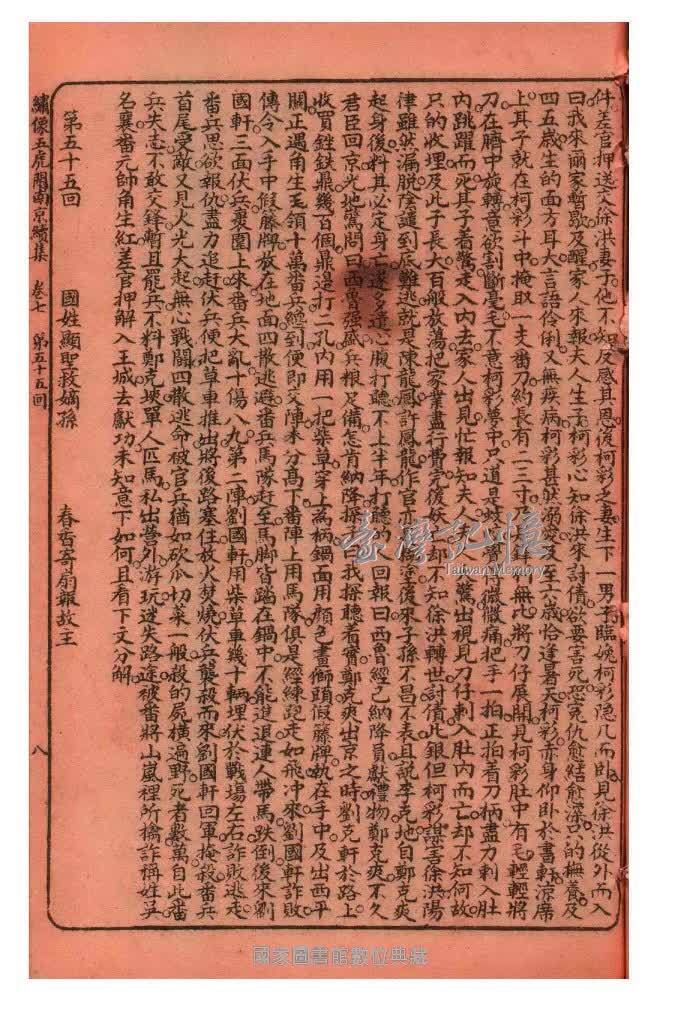 件差官押送交徐洪妻子他不知反感其恩後柯彩之妻生下一男孩臨娩柯彩隱几而臥見徐洪從外而入
曰我來爾家暫歇及醒家人來報夫人生子柯彩心知徐洪來討債欲要害死恐冤仇愈結愈深只的撫養及
四五歲生的面方耳大言語伶俐又無疾病柯彩甚然溺愛及至六歲恰逢暑天柯彩赤身仰臥於書軒涼席
上耳子就在柯彩斗中掩取一支番刀約長有二三寸無此將刀仔展開見柯彩肚中有毛輕輕將
刀在臍中旋轉意欲割斷毫毛不意柯彩夢中只道是蚊微微痛把手一拍正拍着刀柄盡力刺入肚
內跳躍而死其子着驚走入內去家人出見忙報知夫人驚出視見刀仔刺入肚內而亡却不知何故
只的收埋及此子長大百般放蕩把家業盡行費完後妖却不知徐洪轉世討債此銀但柯彩謀害徐洪陽
律雖然漏脫陰譴到底難逃就是陳龍鳳許鳳龍作官亦後來子孫不昌不表且說李克地自鄭克爽
起身後料其必定身亡遂多遣心腹打聽不上半年打聽的回報曰西魯經已納降貝獻禮物鄭克爽不久
君臣回京光地驚問曰西魯强盛兵粮足備怎肯納降探我探聽着實鄭克爽出京之時劉克軒於路上
收買銼鉄鼎幾百個鼎邊打二孔內用一把柴草穿上為柄鍋面用顏色畫獅頭假藤牌執在手中及出西平
關正遇角生王領十萬番兵總到便即交陣未分高下番陣上用馬隊俱是經練跑走如飛冲來劉國軒詐敗
傳令入手中假藤牌放在地面四散逃避番兵馬隊赶至馬脚皆踏在鍋中不能進退連人帶馬跌倒後來劉
國軒三面伏兵裹圍上來番兵大亂十傷八九第二陣劉國軒用柴草車幾十輛埋伏於戰場左右詐敗逃走
番兵思欲報仇盡力追赶伏兵便把草車推出將後路塞住放火焚燒伏兵襲殺而來劉國軒回軍掩殺番兵
首尾受敵又見火光大起無心戰鬪四散逃命被官兵猶如砍瓜切菜一般殺的屍橫遍野死者數萬自此番
兵失志不敢交鋒暫且罷兵不料鄭克塽單人匹馬私出營外游玩迷失路途被番將山嵐裡所擒詐稱姓吳
名襄番元帥角生紅差官押解入王城去獻功未知意下如何且看下文分解
第五十五回 國姓顯聖救嫡孫 春香寄扇報故主
繡像五虎鬧南京續集 卷七 第五十五回 八
臺灣記憶
Taiwan Memory
國家圖書館數位典藏